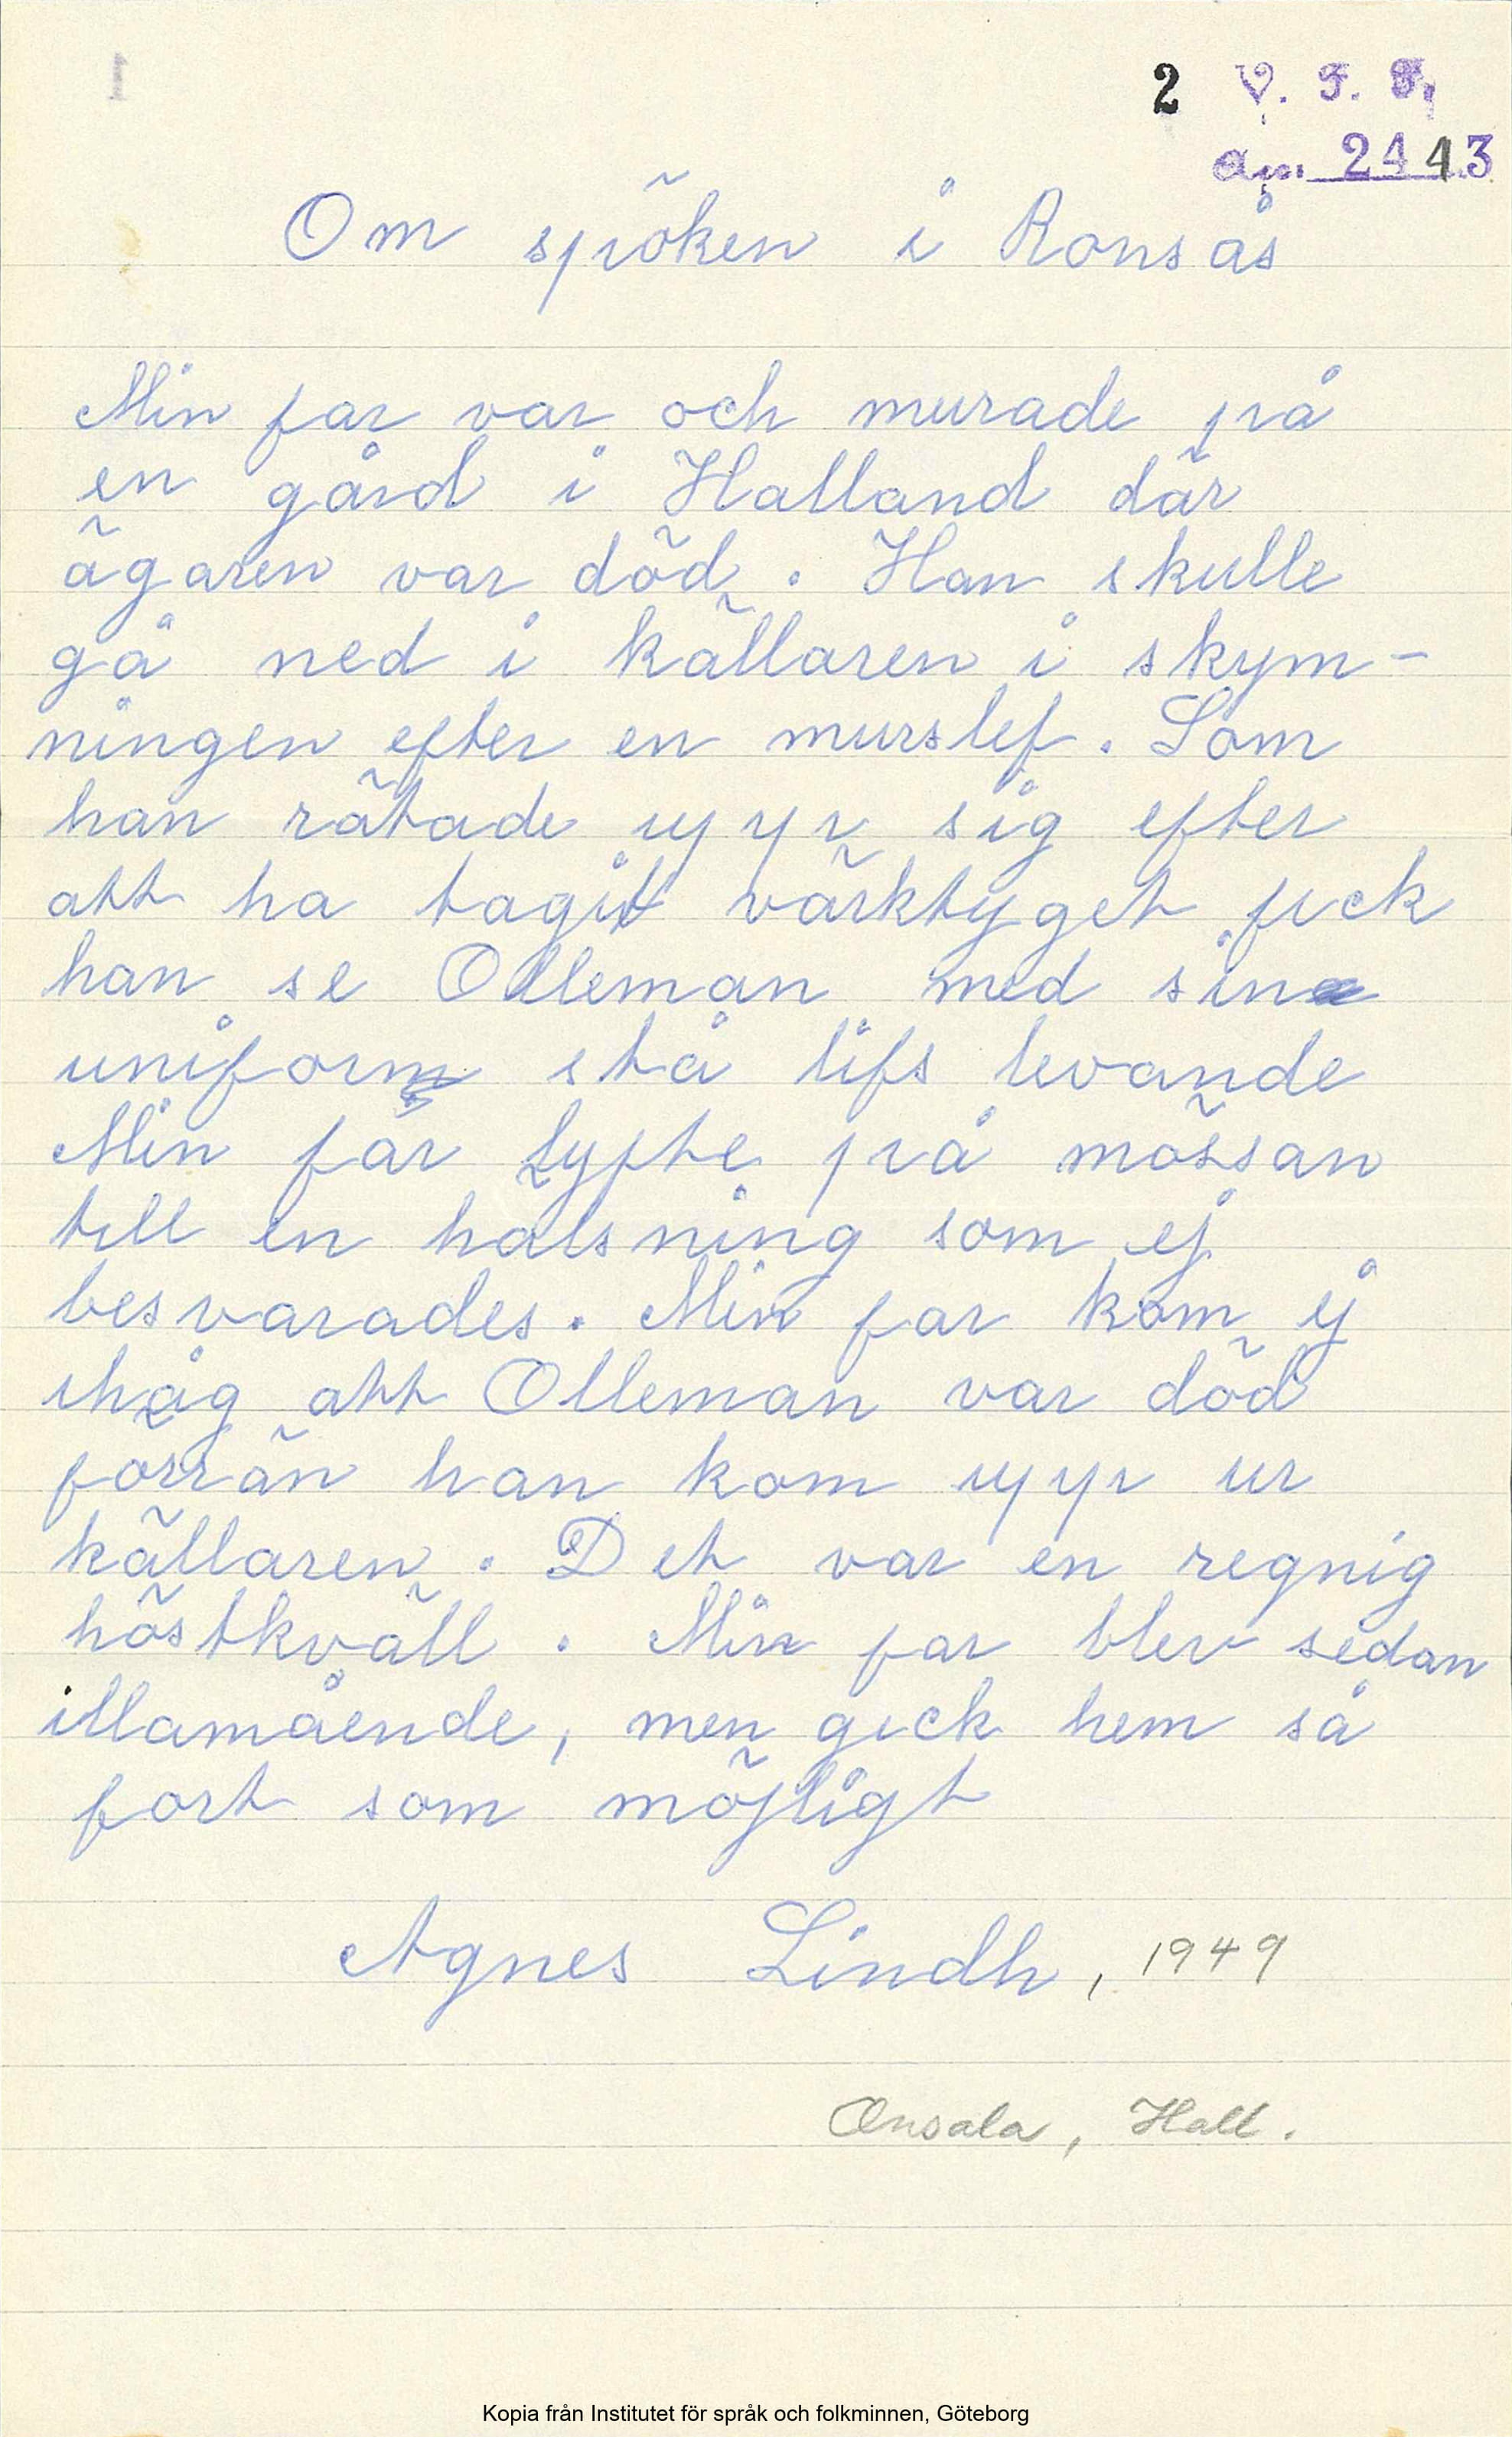 2 V. F. F.
acc. 2443
Om spöken i Ronsås
Min far var och murade på
en gård i Halland där
ägaren var död. Han skulle
gå ned i källaren i skym-
ningen efter en murslef. Som
han rätade upp sig efter
att ha tagit värktyget fick
han se Olleman med sin
uniform stå lifs levande
Min far lyfte på mössan
till en hälsning som ej
besvarades. Min far kom ej
ihåg att Olleman var död
förrän han kom upp ur
källaren. Det var en regnig
höstkväll. Min far blev sedan
illamående, men gick hem så
fort som möjligt
Agnes Lindh, 1949
Onsala, Hall.
Kopia från Institutet för språk och folkminnen, Göteborg